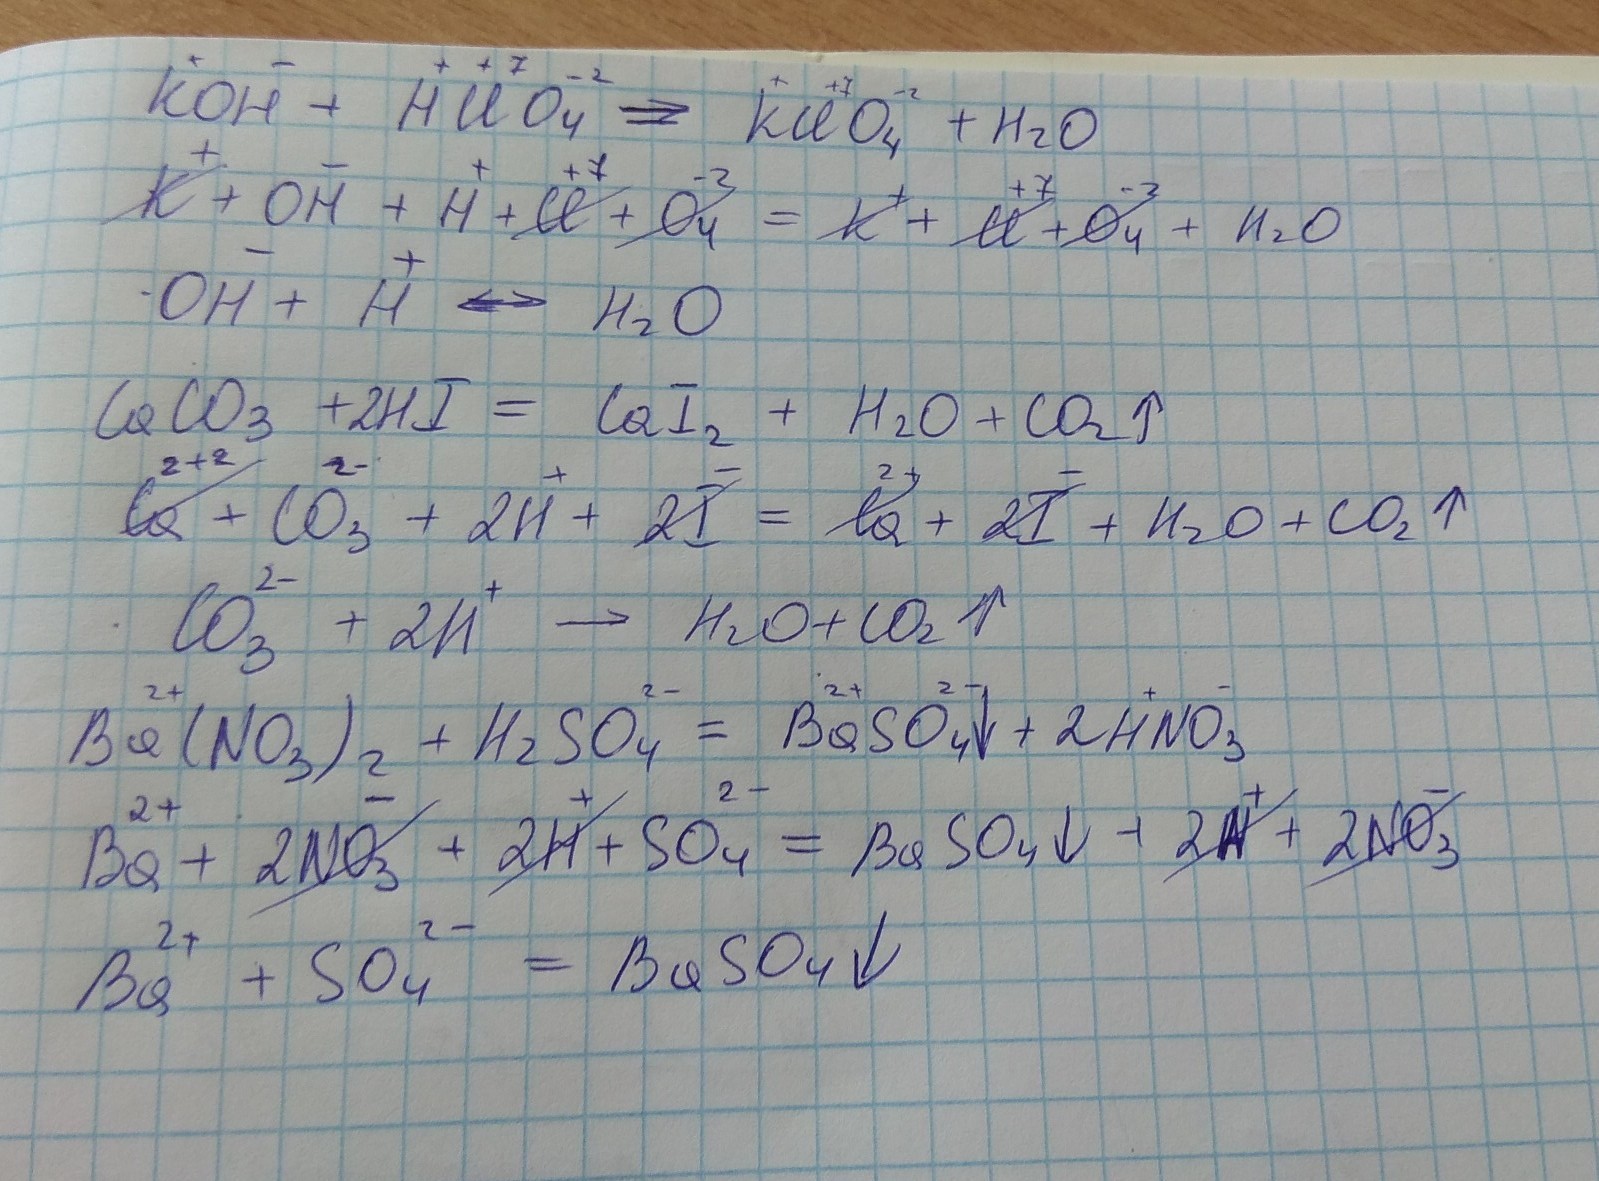 K⁺OH⁻ + H⁺Cl⁺⁷O₄⁻² = K⁺Cl⁺⁷O₄⁻² + H₂O
K⁺ + OH⁻ + H⁺ + Cl⁺⁷ + O₄⁻² = K⁺ + Cl⁺⁷ + O₄⁻² + H₂O
OH⁻ + H⁺ ↔ H₂O
CaCO₃ + 2HI = CaI₂ + H₂O + CO₂↑
Ca²⁺² + CO₃²⁻ + 2H⁺ + 2I⁻ = Ca²⁺ + 2I⁻ + H₂O + CO₂↑
CO₃²⁻ + 2H⁺ → H₂O + CO₂↑
Ba²⁺(NO₃)₂ + H₂SO₄²⁻ = Ba²⁺SO₄²⁻↓ + 2H⁺NO₃⁻
Ba²⁺ + 2NO₃⁻ + 2H⁺ + SO₄²⁻ = BaSO₄↓ + 2H⁺ + 2NO₃⁻
Ba²⁺ + SO₄²⁻ = BaSO₄↓